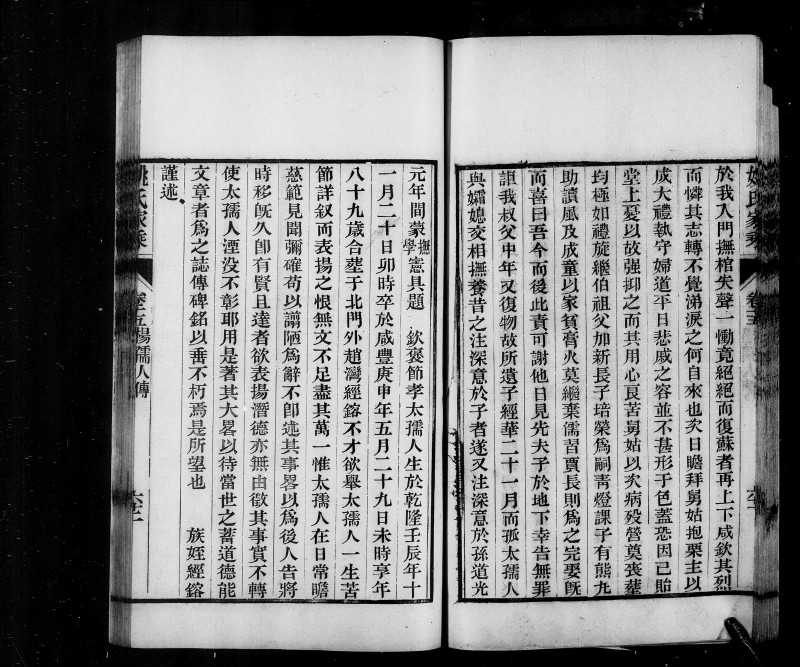 姚氏家乘
卷十五
於我入門撫棺失聲一慟竟絕絕而復蘇者再上下咸欽其烈
而憐其志轉不覺涕淚之何自來也次日瞻拜舅姑抱栗主以
成大禮執守婦道平日悲戚之容並不甚形于色蓋恐因已貽
堂上憂以故強抑之而其用心良苦舅姑以次病歿營奠喪葬
均極如禮旋繼伯祖父加新長子培榮為嗣靑燈課子有熊丸
助讀風及成童以家貧膏火莫繼棄儒習賈長則為之完娶旣
而喜曰吾今而後此責可謝他日見先夫子於地下幸告無罪
詎我叔父中年又復物故所遺子經華二十一月而孤太孺人
與孀媳交相撫養昔之注深意於子者遂又注深意於孫道光
元年間蒙撫學憲具題　欽褒節孝太孺人生於乾隆壬辰年十
一月二十日卯時卒於咸豐庚申年五月二十九日未時享年
八十九歲合塟于北門外趙灣經鎔不才欲舉太孺人一生苦
節詳叙而表揚之恨無文不足盡其萬一惟太孺人在日常瞻
慈範見聞彌確苟以謭陋為辭不卽述其事畧以為後人告將
時移旣久卽有賢且達者欲表揚潛德亦無由徵其事實不轉
使太孺人湮没不彰耶用是著其大畧以待當世之蓄道德能
文章者為之誌傳碑銘以垂不朽焉是所望也　　族姪經鎔
謹述
姚氏家乘
卷十五楊孺人傳